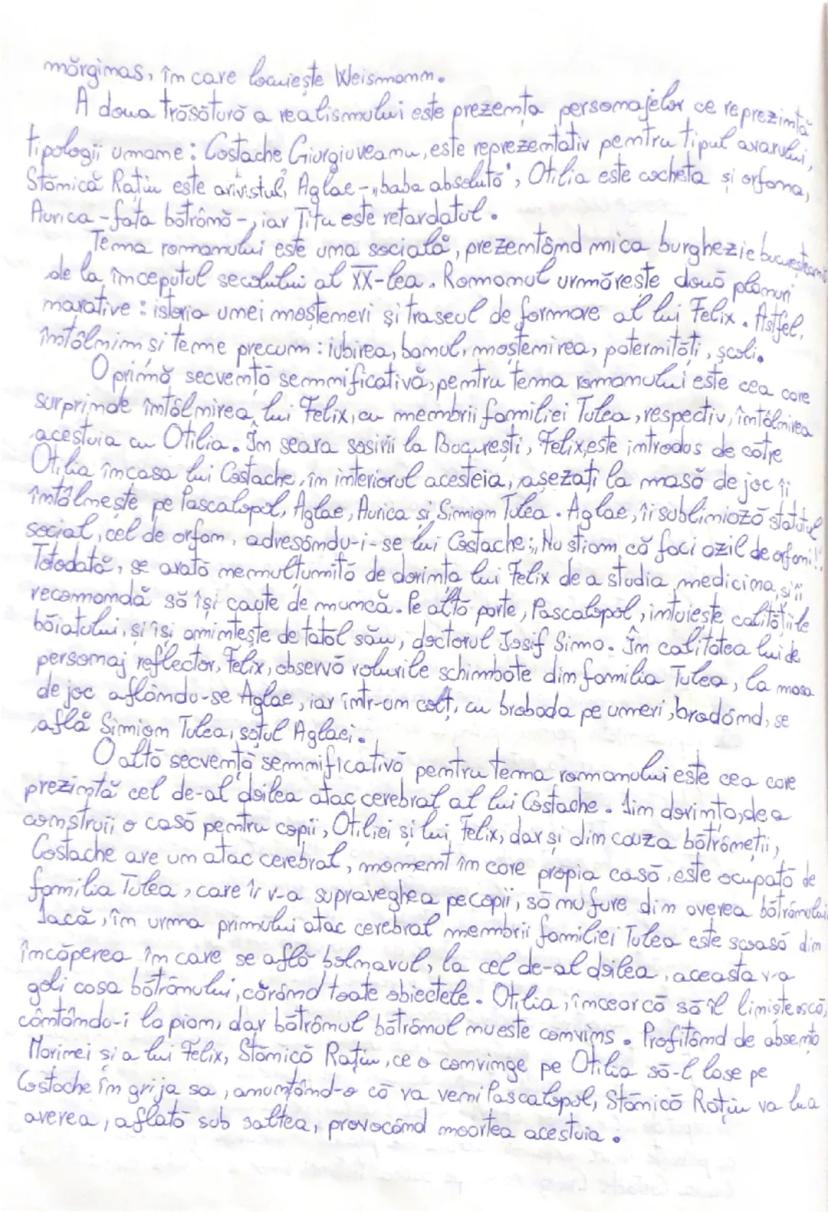 mărginas, în care locuiește Weismann.
A doua trăsătură a realismului este prezența personajelor ce reprezintă
tipologii umane: Costache Giurgiuveanu, este reprezentativ pentru tipul avarului,
Stănică Rațiu este arivistul, Aglae-„baba absolută", Otilia este cocheta și orfana,
Aurica-fata bătrână-, iar Titu este retardatul.
Tema romanului este una socială, prezentând mica burghezie bucureșteană
de la începutul secolului al XX-lea. Romanul urmărește două planuri
narative: istoria unei moștenevi și traseul de formare al lui Felix. Astfel,
întâlnim si teme precum: iubirea, banul, moștenirea, paternității, școli.
O primă secvență semnificativă, pentru tema romanului este cea care
surprinde întâlnirea lui Felix, cu membrii familiei Tulea, respectiv, întâlnirea
acestuia cu Otilia. În seara sosirii la București, Felix, este introdus de către
Otilia în casa lui Costache, în interiorul acesteia, așezați la masă de joc îi
întâlnește pe Pascalopol, Aglae, Aurica și Simion Tulea. Aglae, îi subliniază statutul
social, cel de orfan, adresându-i-se lui Costache: „Nu știam, că faci azil de orfani!".
Totodată, se arată nemulțumită de dorința lui Felix de a studia medicina, și îi
recomandă să își caute de muncă. Pe altă parte, Pascalopol, intuiește calitățile
băiatului, și își amintește de tatăl său, doctorul Iosif Sima. În calitatea lui de
personaj reflector, Felix, observă rolurile schimbate din familia Tulea, la masa
de joc aflându-se Aglae, iar într-un colț, cu broboda pe umeri, brodând, se
află Simion Tulea, soțul Aglaei.
O altă secvență semnificativă pentru tema romanului este cea care
prezintă cel de-al doilea atac cerebral al lui Costache. Din dorința, de a
construii o casă pentru copii, Otiliei și lui Felix, dar și din cauza bătrâneții,
Costache are un atac cerebral, moment în care propia casă, este ocupată de
familia Tulea, care îi v-a supraveghea pe copii, să nu fure din averea bătrânului.
Dacă, în urma primului atac cerebral membrii familiei Tulea este scoasă din
încăperea în care se află bolnavul, la cel de-al doilea, aceasta v-a
goli casa bătrânului, cărând toate obiectele. Otilia, încearcă să îl liniștească,
cântându-i la pian, dar bătrânul bătrânul nu este convins. Profitând de absența
Marinei și a lui Felix, Stănică Rațiu, ce o convinge pe Otilia să-l lase pe
Costache în grija sa, anunțând-o că va veni Pascalopol, Stănică Rațiu va lua
averea, aflată sub saltea, provocând moartea acestuia.